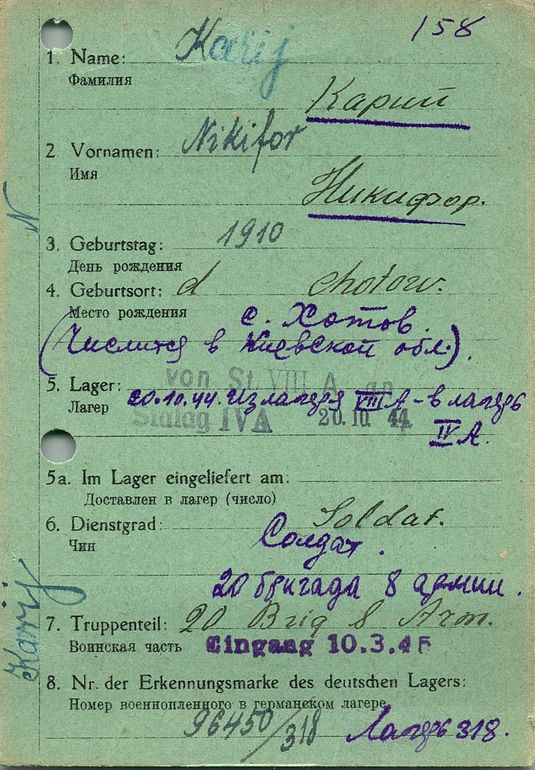 158
1. Name: Karij
Фамилия
Карий
2. Vornamen: Nikifor
Имя
Никифор.
3. Geburtstag: 1910
День рождения
4. Geburtsort: d chotow.
Место рождения
с. Хотов.
(Числится в Киевской обл.).
5. Lager: von St. VIII A an
Лагер 20.10.44. из лагеря VIII A - в лагерь
Stalag IV A 20. 10 44
IV A.
5a. Im Lager eingeliefert am:
Доставлен в лагер (число)
6. Dienstgrad: Soldat.
Чин Солдат.
20 бригада 8 армии.
7. Truppenteil: 20 Brig 8 Arm.
Воинская часть Eingang 10.3.45
8. Nr. der Erkennungsmarke des deutschen Lagers:
Номер военнопленного в германском лагере
96450/318 Лагерь 318.
N
Karij